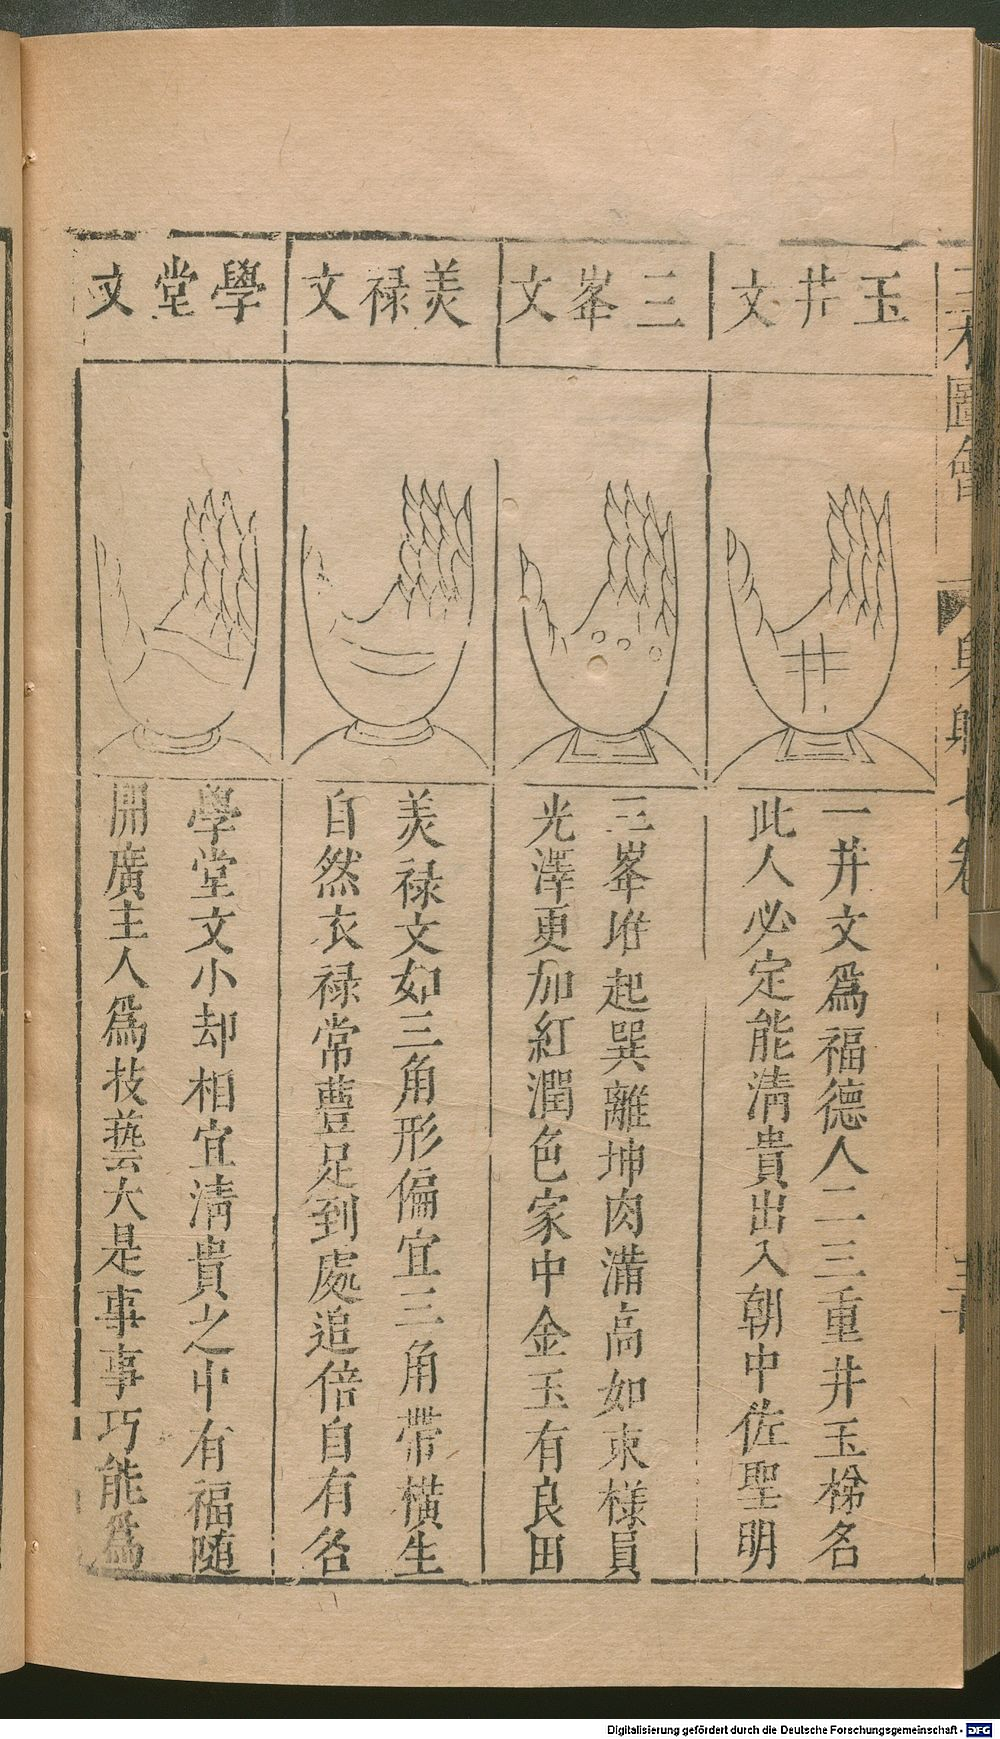 玉井文
一井文爲福德人二三重井玉梯名
此人必定能淸貴出入朝中佐聖明
三峯文
三峯堆起巽離坤肉滿高如束様員
光澤更加紅潤色家中金玉有良田
美禄文
美禄文如三角形偏宜三角帶橫生
自然衣禄常豊足到處追倍自有名
學堂文
學堂文小却相宜淸貴之中有福隨
開廣主人爲技藝大是事事巧能爲
圖會
卷
Digitalisierung gefördert durch die Deutsche Forschungsgemeinschaft - DFG